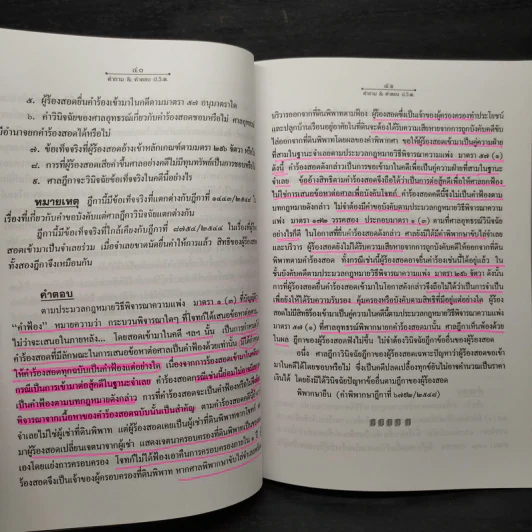 ๔๐
คำถาม & คำตอบ ป.วิ.พ.
๕. ผู้ร้องสอดยื่นคำร้องเข้ามาในคดีตามมาตรา ๕๗ อนุมาตราใด
๖. คำวินิจฉัยของศาลอุทธรณ์เกี่ยวกับคำร้องสอดชอบหรือไม่ ศาลอุทธรณ์
มีอำนาจยกคำร้องสอดได้หรือไม่
๗. ข้อเท็จจริงที่ผู้ร้องสอดอ้างเข้าหลักเกณฑ์ตามมาตรา ๒๙๖ จัตวา (๓) หรือไม่
๘. การที่ผู้ร้องสอดเสียค่าขึ้นศาลอย่างคดีไม่มีทุนทรัพย์เป็นการชอบหรือไม่
๙. ศาลฎีกาจะวินิจฉัยข้อเท็จจริงในคดีนี้อย่างไร
หมายเหตุ ฎีกานี้มีข้อเท็จจริงที่แตกต่างกับฎีกาที่
เรื่องที่เกี่ยวกับคำขอบังคับแต่ศาลฎีกาวินิจฉัยแตกต่างกัน
ฎีกานี้มีข้อเท็จจริงที่ใกล้เคียงกับฎีกาที่ ในเรื่องที่ผู้ร้อง
สอดเข้ามาเป็นจำเลยร่วม เมื่อจำเลยขาดนัดยื่นคำให้การแล้ว สิทธิของผู้ร้องสอด
ทั้งสองฎีกาจึงเหมือนกัน
คำตอบ
ตามประมวลกฎหมายวิธีพิจารณาความแพ่ง มาตรา ๑ (๓) ที่บัญญัติว่า
"คำฟ้อง" หมายความว่า กระบวนพิจารณาใดๆ ที่โจทก์ได้เสนอข้อหาต่อศาล
ไม่ว่าจะเสนอในภายหลัง... โดยสอดเข้ามาในคดี ฯลฯ นั้น เป็นการกำหนดให้
คำร้องสอดที่มีลักษณะในการเสนอข้อหาต่อศาลเป็นคำฟ้องด้วยเท่านั้น มิได้กำหนด
ให้คำร้องสอดทุกฉบับเป็นคำฟ้องแต่อย่างใด เนื่องจากการร้องสอดเข้ามาในคดีบาง
กรณีเป็นการเข้ามาต่อสู้คดีในฐานะจำเลย คำร้องสอดกรณีเช่นนี้ย่อมไม่มีลักษณะ
เป็นคำฟ้องตามบทกฎหมายดังกล่าว การที่คำร้องสอดจะเป็นคำฟ้องหรือไม่จึงต้อง
พิจารณาจากเนื้อหาของคำร้องสอดฉบับนั้นเป็นสำคัญ ตามคำร้องสอดที่ผู้ร้องสอดอ้างว่า
จำเลยไม่ได้เป็นผู้เช่าที่ดินพิพาท แต่ผู้ร้องสอดเคยเป็นผู้เช่าที่ดินพิพาทจากโจทก์
มาผู้ร้องสอดเปลี่ยนเจตนาจากผู้เช่า แสดงเจตนาครอบครองที่ดินพิพาทเป็นของตน
เองโดยแย่งการครอบครอง โจทก์ไม่ได้ฟ้องเอาคืนการครอบครองภายใน ๑ ปี
ร้องสอดจึงเป็นเจ้าของผู้ครอบครองที่ดินพิพาท หากศาลพิพากษาขับไล่จำเลย
คำถาม & คำตอบ ป.วิ.พ.
บริวารออกจากที่ดินพิพาทตามฟ้อง ผู้ร้องสอดซึ่งเป็นเจ้าของผู้ครองครองทำประโยชน์
และปลูกบ้านเรือนอยู่อาศัยในที่ดินจะต้องได้รับความเสียหายจากการถูกบังคับคดีขับ
ไล่ออกจากที่ดินพิพาทโดยผลของคำพิพากษา ขอให้ผู้ร้องสอดเข้ามาเป็นคู่ความฝ่าย
ที่สามในฐานะจำเลยตามประมวลกฎหมายวิธีพิจารณาความแพ่ง มาตรา ๕๗ (๑)
ดังนี้ คำร้องสอดดังกล่าวเป็นการขอเข้ามาในคดีเพื่อเป็นคู่ความฝ่ายที่สามในฐานะ
จำเลย ข้ออ้างสิทธิตามคำร้องสอดดังกล่าวจึงถือได้ว่าเป็นการต่อสู้คดีเพื่อให้ศาลยกฟ้อง
ไม่ใช่การเสนอข้อหาต่อศาลเพื่อบังคับโจทก์ คำร้องสอดดังกล่าวจึงไม่เป็นคำฟ้องตาม
บทกฎหมายดังกล่าว ไม่จำต้องมีคำขอบังคับตามประมวลกฎหมายวิธีพิจารณาความ
แพ่ง มาตรา ๑๗๒ วรรคสอง ประกอบมาตรา ๑ (๓) ตามที่ศาลอุทธรณ์วินิจฉัยแต่
อย่างใด
และบริวาร ผู้ร้องสอดยังไม่ได้รับความเสียหายจากการถูกบังคับคดีให้ออกจากที่ดิน
พิพาทตามคำร้องสอด ทั้งกรณีเช่นนี้ผู้ร้องสอดอาจยื่นคำร้องเช่นนี้ได้อยู่แล้ว ใน
ชั้นบังคับคดีตามประมวลกฎหมายวิธีพิจารณาความแพ่ง มาตรา ๒๙๖ จัตวา ดังนั้น
การที่ผู้ร้องสอดยื่นคำร้องสอดเข้ามาในโอกาสดังกล่าวจึงถือไม่ได้ว่าเป็นการจำเป็น
เพื่อยังให้ได้รับความรับรอง คุ้มครองหรือบังคับตามสิทธิที่มีอยู่แต่อย่างใด ผู้ร้องสอด
ไม่มีสิทธิร้องสอดเข้ามาเป็นคู่ความในคดีนี้ตามประมวลกฎหมายวิธีพิจารณาความแพ่ง
มาตรา ๕๗ (๑) ที่ศาลอุทธรณ์พิพากษายกคำร้องสอดมานั้น ศาลฎีกาเห็นพ้องด้วย
ในผล ฎีกาของผู้ร้องสอดฟังไม่ขึ้น ไม่จำต้องวินิจฉัยฎีกาข้ออื่นของผู้ร้องสอด
อนึ่ง ศาลฎีกาวินิจฉัยฎีกาของผู้ร้องสอดเฉพาะปัญหาว่าผู้ร้องสอดจะเข้า
มาในคดีได้โดยชอบหรือไม่ ซึ่งเป็นคดีปลดเปลื้องทุกข์อันไม่อาจคำนวณเป็นราคา
เงินได้ โดยยังมิได้วินิจฉัยปัญหาข้ออื่นตามฎีกาของผู้ร้องสอด
พิพากษายืน